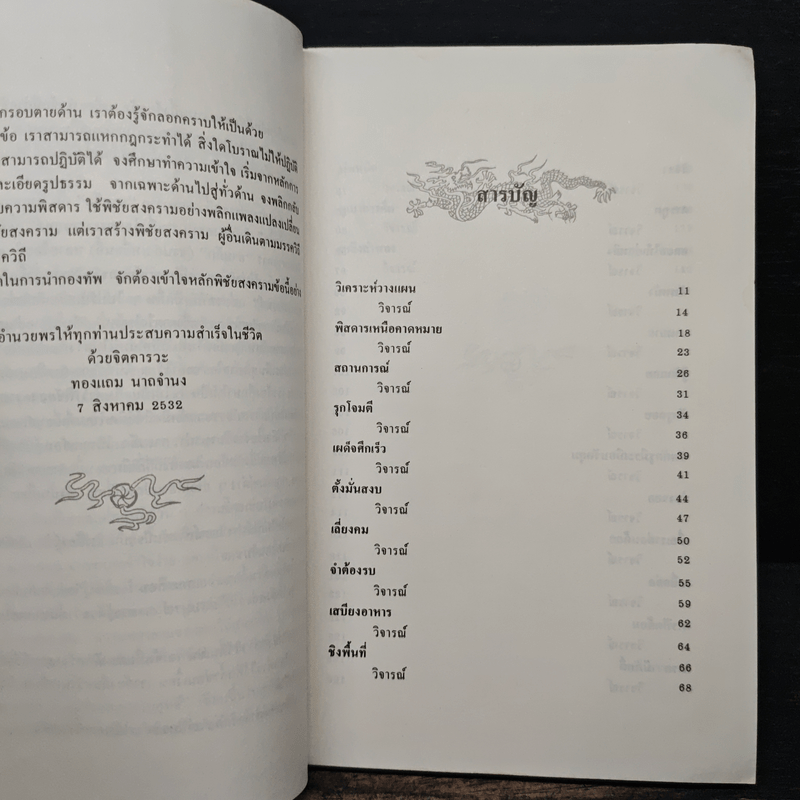 กรอบตายด้าน เราต้องรู้จักลอกคราบให้เป็นด้วย
ข้อ เราสามารถแหกกฎกระทำได้ สิ่งใดโบราณไม่ให้ปฏิบัติ
สามารถปฏิบัติได้ จงศึกษาทำความเข้าใจ เริ่มจากหลักการ
ละเอียดรูปธรรม จากเฉพาะด้านไปสู่ทั่วด้าน จงพลิกกลับ
ยความพิสดาร ใช้พิชัยสงครามอย่างพลิกแพลงแปลงเปลี่ยน
ัยสงคราม แต่เราสร้างพิชัยสงคราม ผู้อื่นเดินตามมรรควิถี
ควิถี
ดในการนำกองทัพ จักต้องเข้าใจหลักพิชัยสงครามข้อนี้อย่าง
อำนวยพรให้ทุกท่านประสบความสำเร็จในชีวิต
ด้วยจิตคารวะ
ทองแถม นาถจำนง
7 สิงหาคม 2532
สารบัญ
วิเคราะห์วางแผน 11
วิจารณ์ 14
พิสดารเหนือคาดหมาย 18
วิจารณ์ 23
สถานการณ์ 26
วิจารณ์ 31
รุกโจมตี 34
วิจารณ์ 36
เผด็จศึกเร็ว 39
วิจารณ์ 41
ตั้งมั่นสงบ 44
วิจารณ์ 47
เลี่ยงคม 50
วิจารณ์ 52
จำต้องรบ 55
วิจารณ์ 59
เสบียงอาหาร 62
วิจารณ์ 64
ชิงพื้นที่ 66
วิจารณ์ 68